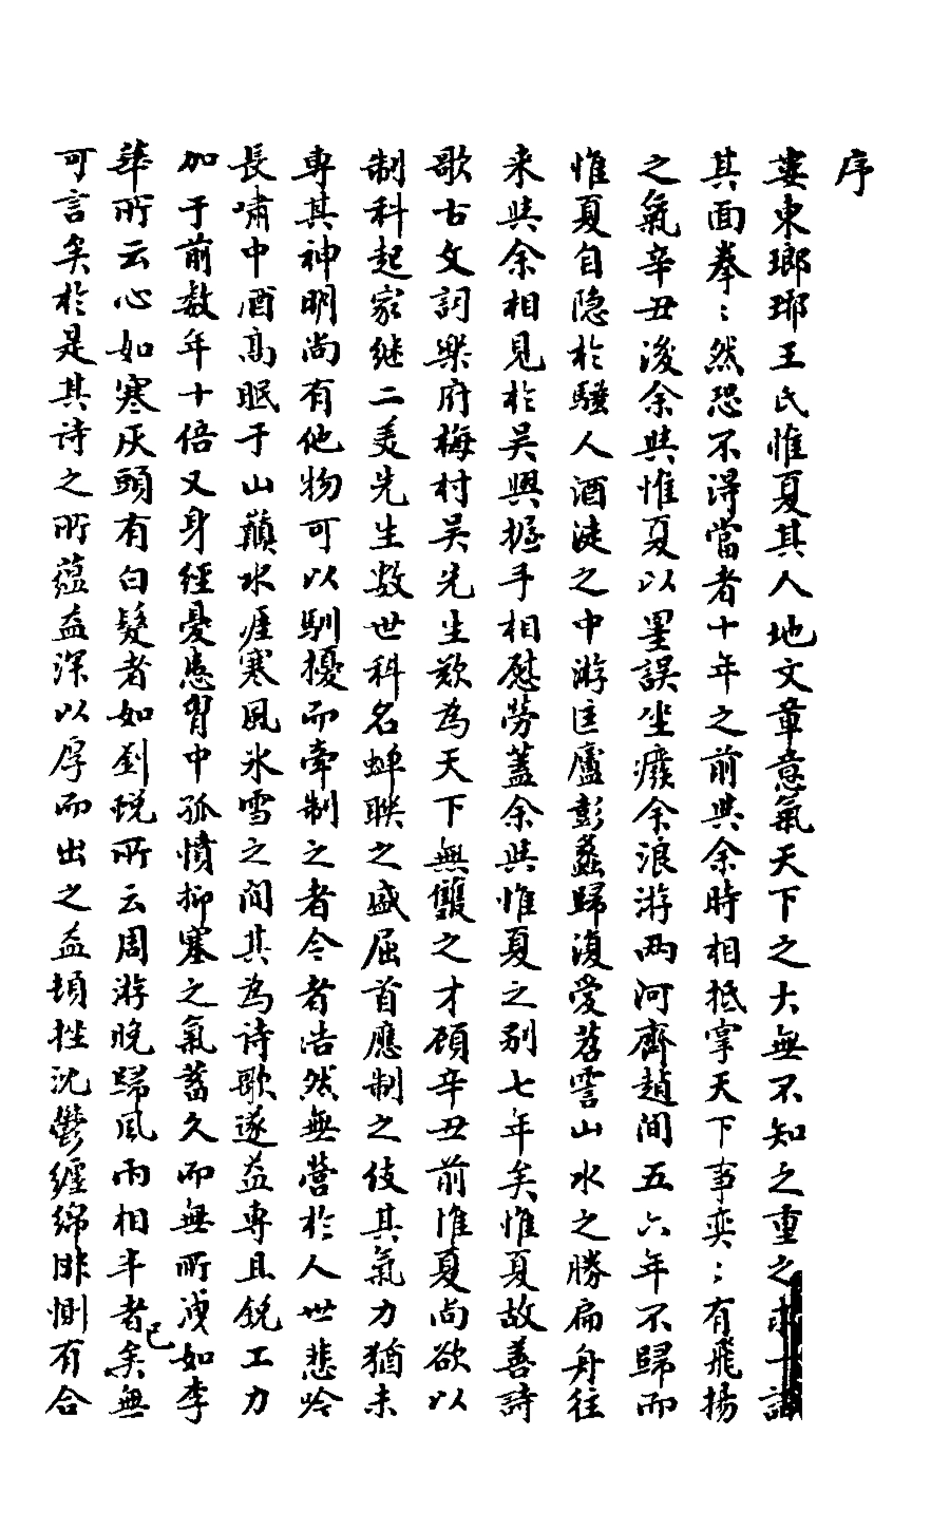 序
婁東瑯琊王氏惟夏其人地文章意氣天下之大無不知之重之求一識
其面拳〻然恐不得當者十年之前與余時相抵掌天下事奕〻有飛揚
之氣辛丑後余與惟夏以詿誤坐廢余浪游兩河齊趙間五六年不歸而
惟夏自隐於騷人酒徒之中游匡廬彭蠡歸復愛苕霅山水之勝扁舟往
来與余相見於吴興握手相慰勞蓋余與惟夏之别七年矣惟夏故善詩
歌古文詞樂府梅村吴先生歎為天下無雙之才顧辛丑前惟夏尚欲以
制科起家继二美先生數世科名蟬聯之盛屈首應制之伎其氣力猶未
專其神明尚有他物可以馴擾而牵制之者令者浩然無營於人世悲吟
長嘯中酒高眠于山巔水涯寒風氷雪之间其為詩歌遂益專且銳工力
加于前数年十倍又身經憂患胷中孤憤抑塞之氣蓄久而無所洩如李
華所云心如寒灰頭有白髮者如劉蛻所云周游晚歸風雨相半者矣無已
可言矣於是其詩之所蕴益深以厚而出之益頓挫沈鬱纏綿悱惻有合